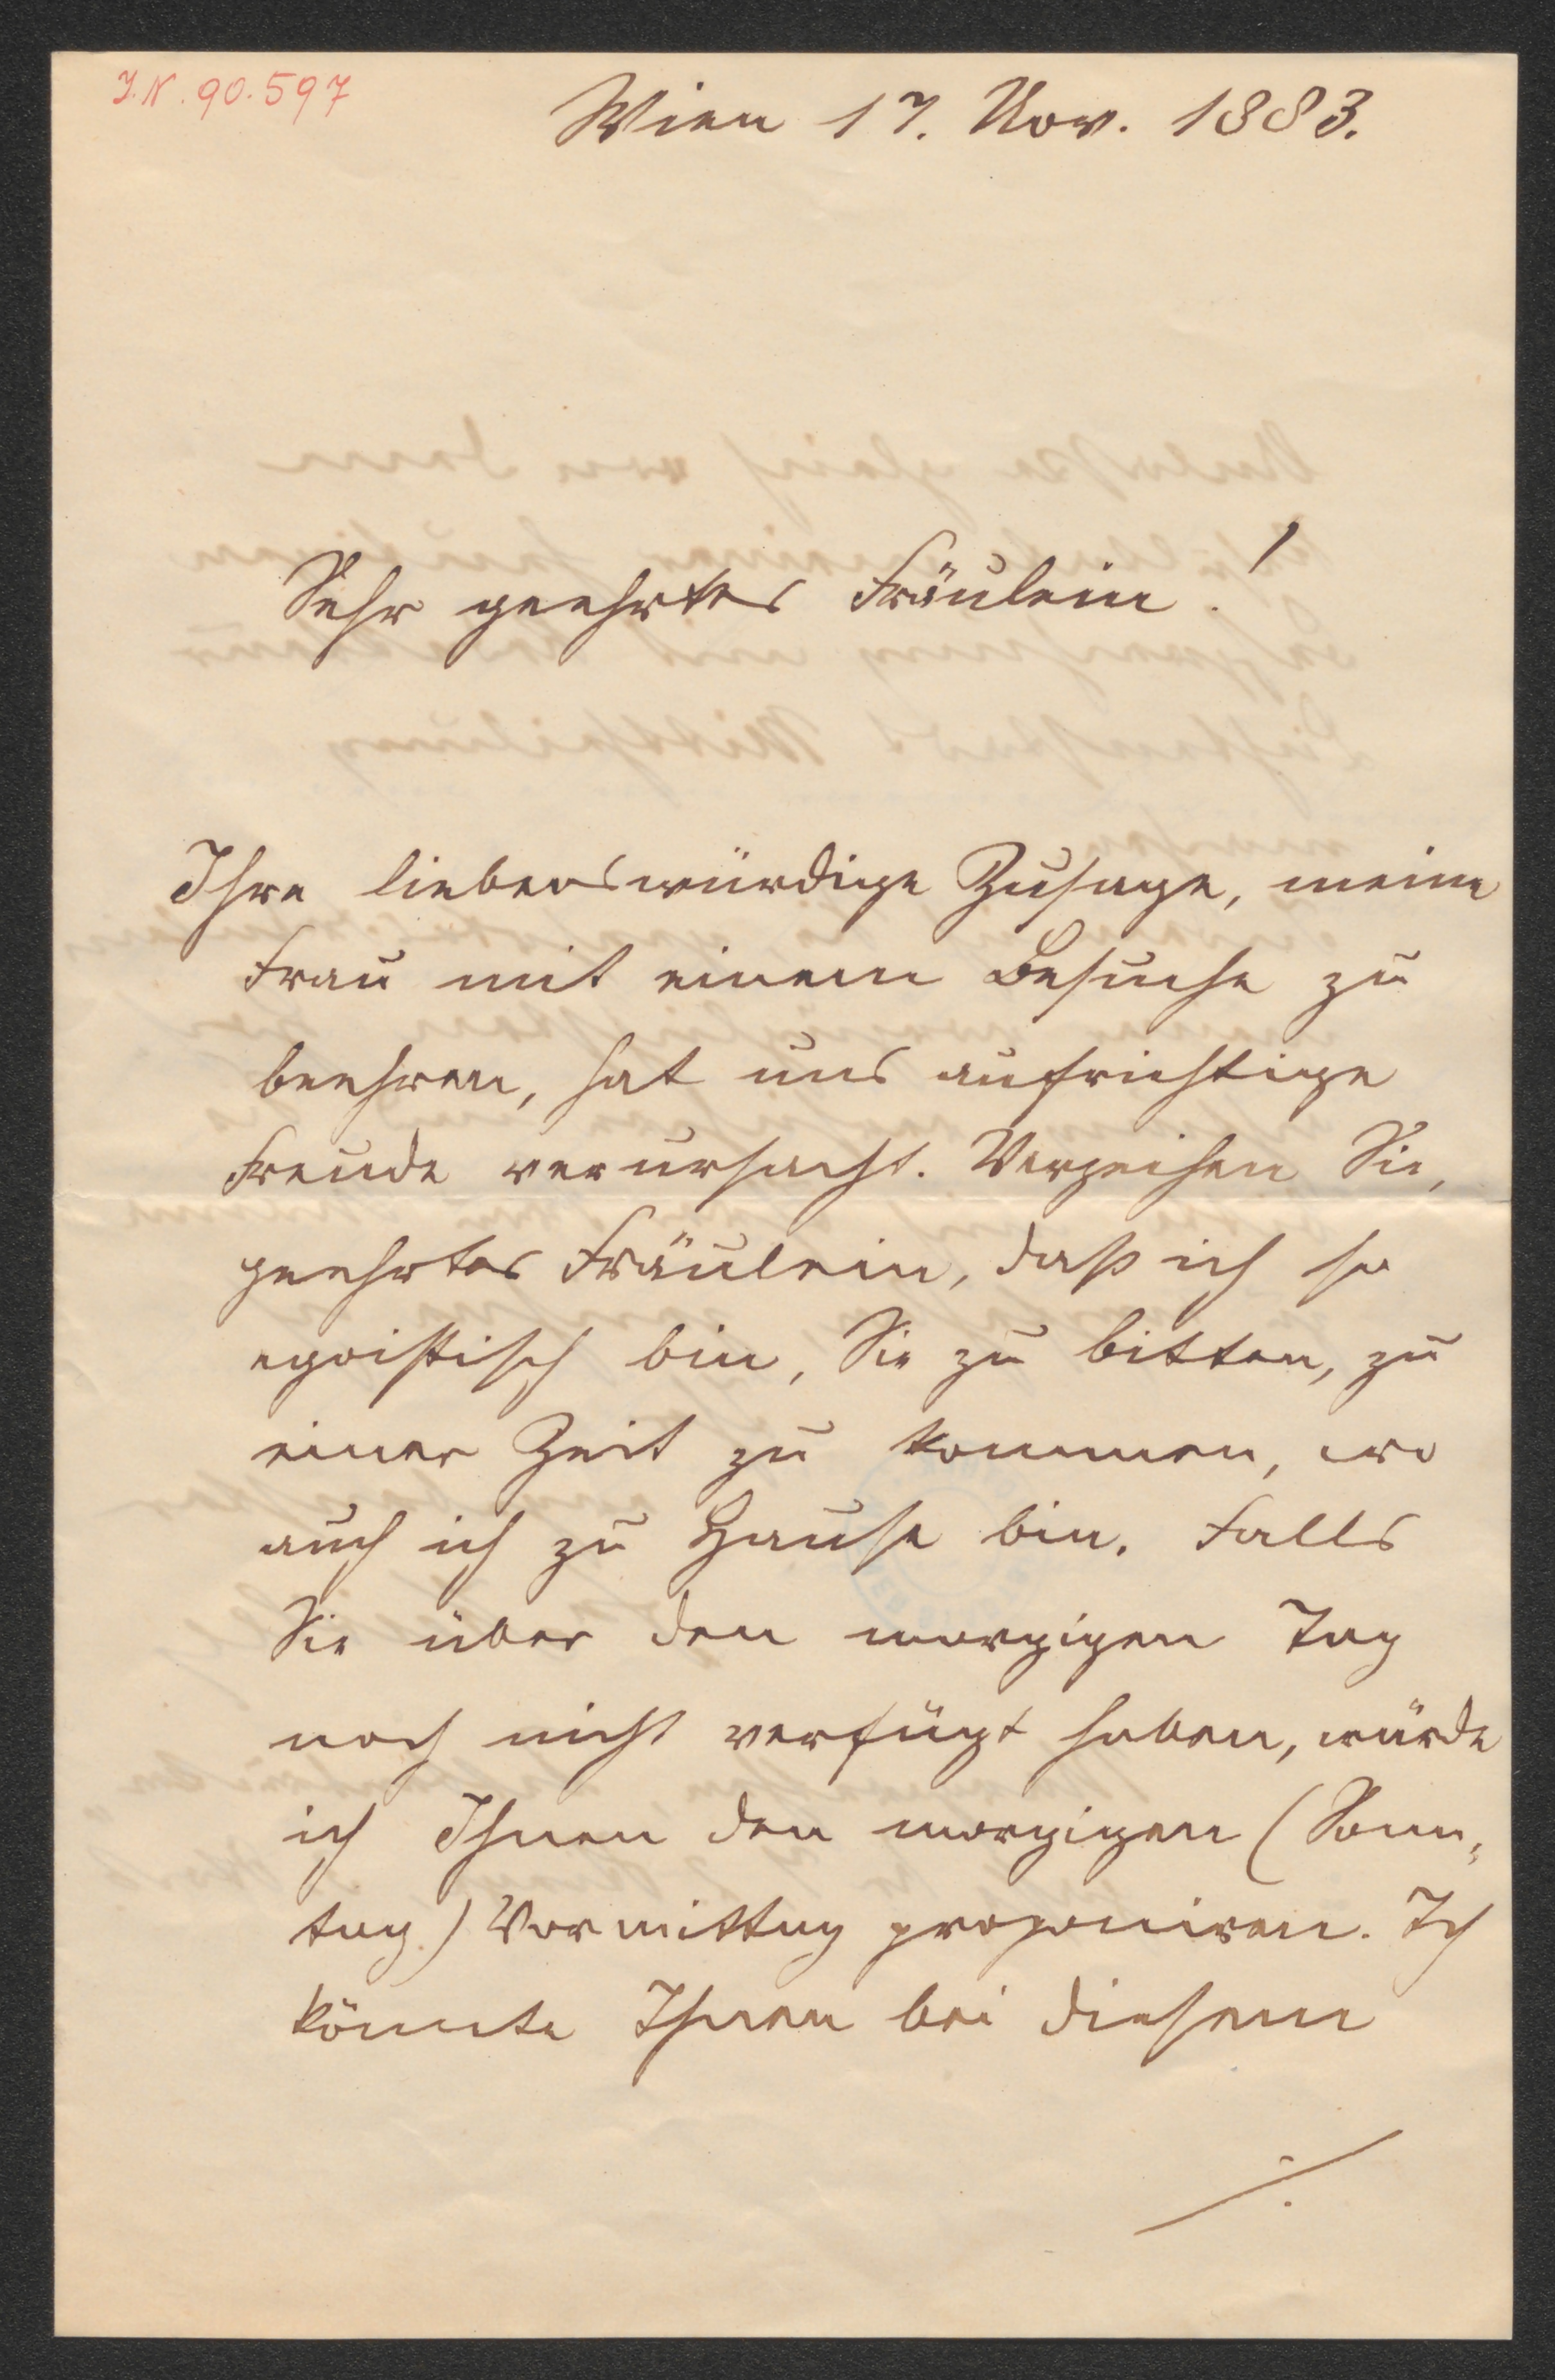 J.N. 90.597
Wien 17. Nov. 1883.
Sehr geehrtes Fräulein!
Ihre liebenswürdige Zusage, meine
Frau mit einem Besuche zu
beehren, hat uns aufrichtige
Freude verursacht. Verzeihen Sie,
geehrtes Fräulein, daß ich so
egoistisch bin, Sie zu bitten, zu
einer Zeit zu kommen, wo
auch ich zu Hause bin. Falls
Sie über den morgigen Tag
noch nicht verfügt haben, würde
ich Ihnen den morgigen (Sonn-
tag) Vormittag proponiren. Ich
könnte Ihnen bei diesem
./.